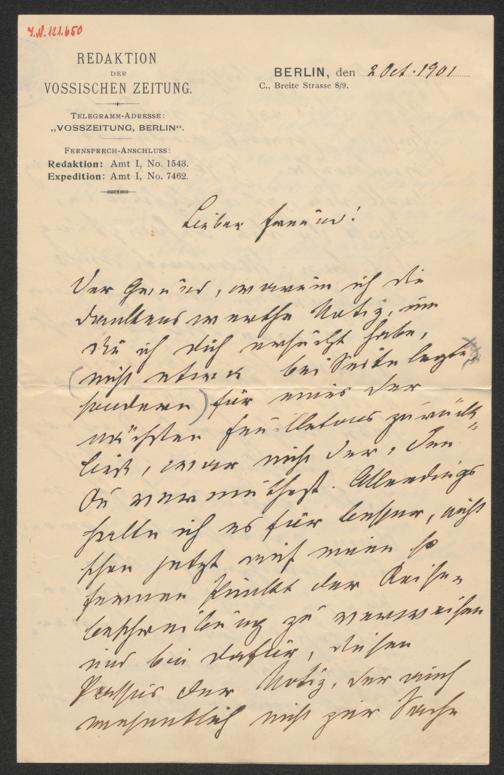 J.N. 121.650
REDAKTION
DER
VOSSISCHEN ZEITUNG.
TELEGRAMM-ADRESSE:
„VOSSZEITUNG, BERLIN“.
FERNSPRECH-ANSCHLUSS:
Redaktion: Amt I, No. 1543.
Expedition: Amt I, No. 7462.
BERLIN, den 2 Oct. 1901
C., Breite Strasse 8/9.
Lieber Freund!
Der Grund, warum ich die
dankenswerthe Notiz, um
die ich dich ersucht habe,
(nicht etwa bei Seite legte,
sondern) für eines der
nächsten Feuilletons zurück
ließ, war nicht der, den
Du vermuthest. Allerdings
halte ich es für besser, nicht
schon jetzt auf einen so
fernen Punkt der Reise-
beschreibung zu verweisen
und bin dafür, diesen
Passus der Notiz, der auch
wesentlich nicht zur Sache